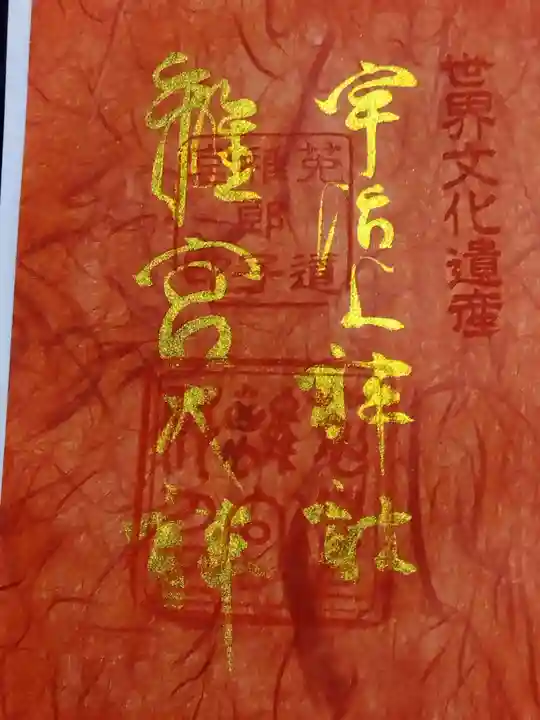 世界文化遺産
宇治上神社
離宮大神
菟道
稚郎子